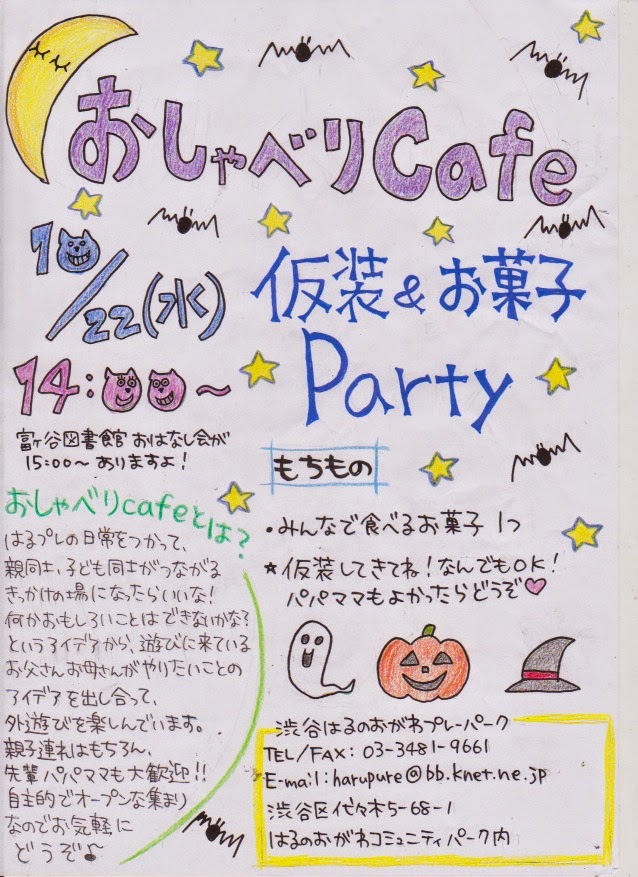 おしゃべりCafe
10/22(水)
14:00～
富ヶ谷図書館 おはなし会が
15:00～ ありますよ!
仮装&お菓子
Party
もちもの
・みんなで食べるお菓子 1つ
★仮装してきてね!なんでもOK!
パパママもよかったらどうぞ♥
おしゃべりcafeとは?
はるプレの日常をつかって、
親同士、子ども同士がつながる
きっかけの場になったらいいな!
何かおもしろいことはできないかな?
というアイデアから、遊びに来ている
お父さんお母さんがやりたいことの
アイデアを出し合って、
外遊びを楽しんでいます。
親子連れはもちろん、
先輩パパママも大歓迎!!
自主的でオープンな集まり
なのでお気軽に
どうぞ♪
渋谷はるのおがわプレーパーク
TEL/FAX: 03-3481-9661
E-mail:harupure@bb.knet.ne.jp
渋谷区代々木5-68-1
はるのおがわコミュニティパーク内